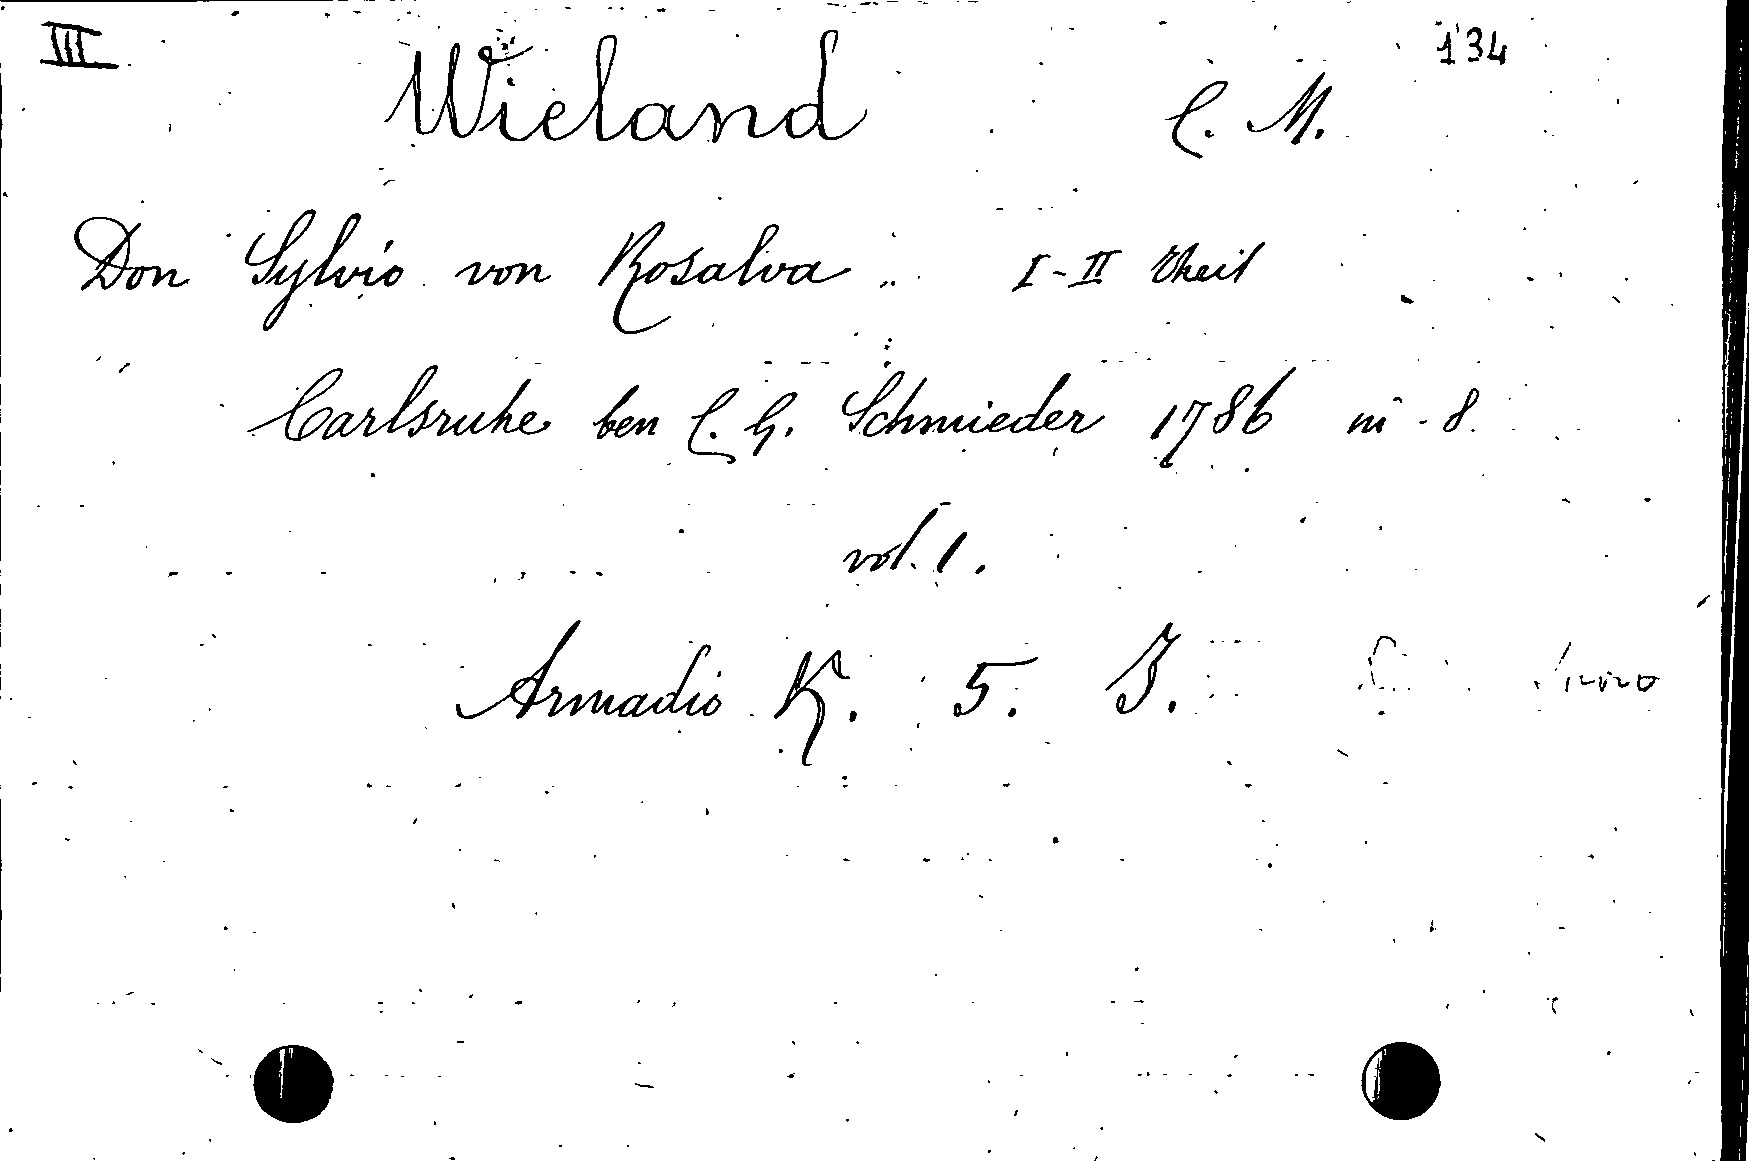 III 134
Wieland C. M.
Don Sylvio von Rosalva .. I-II theil
Carlsruhe ben C. G. Schmieder 1786 in-8.
vol. 1.
Armadio K. 5. J.